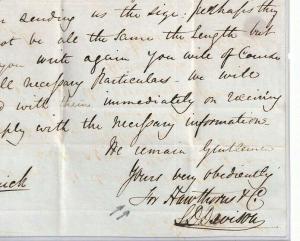 sending us the sige. perhaps they
not be all the same the length but
you write again you will of Course
all necessary Particulars - we will
with them immediately on receiving
reply with the necessary information
We remain Gentlemen
Yours very obediently
for Hawthorns & Co